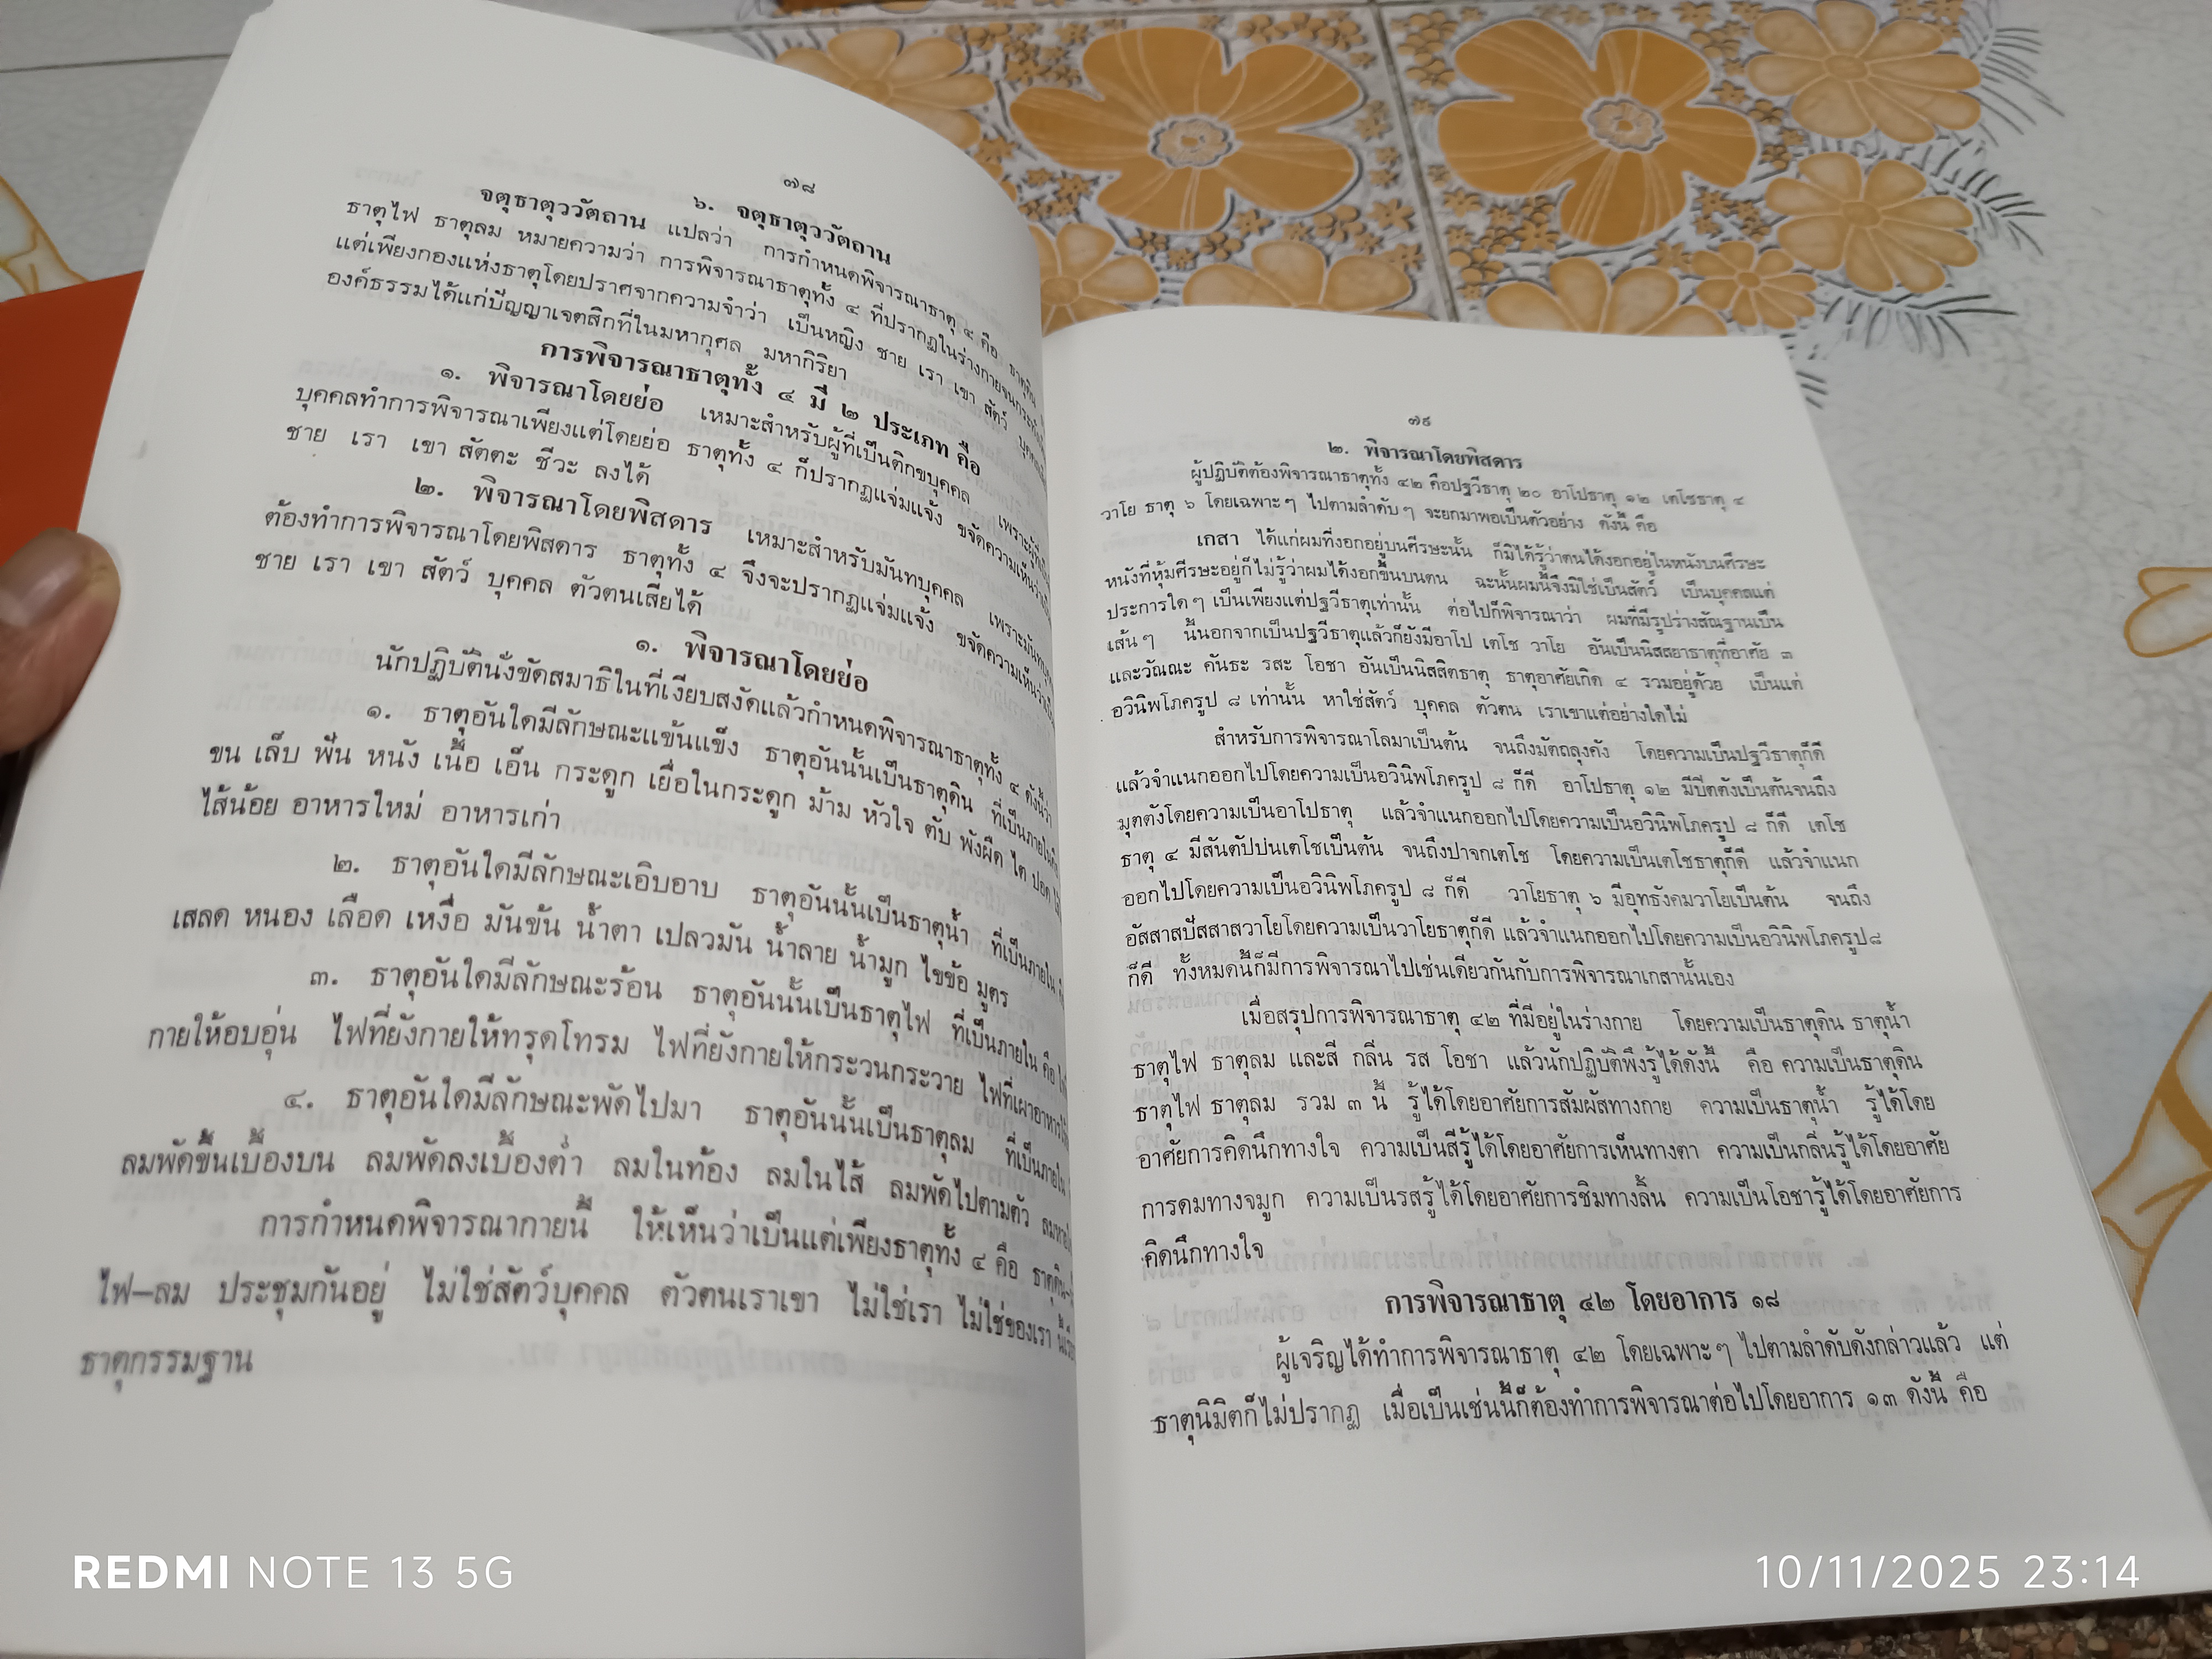 ๗๘
๖. จตุธาตุววัตถาน
จตุธาตุววัตถาน แปลว่า การกำหนดพิจารณาธาตุ ๔ คือ ธาตุดิน
ธาตุไฟ ธาตุลม หมายความว่า การพิจารณาธาตุทั้ง ๔ ที่ปรากฏในร่างกายจนกระทั่ง
แต่เพียงกองแห่งธาตุโดยปราศจากความจำว่า เป็นหญิง ชาย เรา เขา สัตว์ บุคคล
องค์ธรรมได้แก่ปัญญาเจตสิกที่ในมหากุศล มหากิริยา
การพิจารณาธาตุทั้ง ๔ มี ๒ ประเภท คือ
๑. พิจารณาโดยย่อ เหมาะสำหรับผู้ที่เป็นติกขบุคคล เพราะผู้ที่เป็น
บุคคลทำการพิจารณาเพียงแต่โดยย่อ ธาตุทั้ง ๔ ก็ปรากฏแจ่มแจ้ง ขจัดความเห็นว่าเป็น
ชาย เรา เขา สัตตะ ชีวะ ลงได้
๒. พิจารณาโดยพิสดาร เหมาะสำหรับมันทบุคคล เพราะมันทบุคคล
ต้องทำการพิจารณาโดยพิสดาร ธาตุทั้ง ๔ จึงจะปรากฏแจ่มแจ้ง ขจัดความเห็นว่าเป็น
ชาย เรา เขา สัตว์ บุคคล ตัวตนเสียได้
๑. พิจารณาโดยย่อ
นักปฏิบัตินั่งขัดสมาธิในที่เงียบสงัดแล้วกำหนดพิจารณาธาตุทั้ง ๔ ดังนี้ว่า
๑. ธาตุอันใดมีลักษณะแข้นแข็ง ธาตุอันนั้นเป็นธาตุดิน ที่เป็นภายในคือ
ขน เล็บ ฟัน หนัง เนื้อ เอ็น กระดูก เยื่อในกระดูก ม้าม หัวใจ ตับ พังผืด ไต ปอด
ไส้น้อย อาหารใหม่ อาหารเก่า
๒. ธาตุอันใดมีลักษณะเอิบอาบ ธาตุอันนั้นเป็นธาตุน้ำ ที่เป็นภายใน
เสลด หนอง เลือด เหงื่อ มันข้น น้ำตา เปลวมัน น้ำลาย น้ำมูก ไขข้อ มูตร
๓. ธาตุอันใดมีลักษณะร้อน ธาตุอันนั้นเป็นธาตุไฟ ที่เป็นภายใน คือ
กายให้อบอุ่น ไฟที่ยังกายให้ทรุดโทรม ไฟที่ยังกายให้กระวนกระวาย ไฟที่เผาอาหาร
๔. ธาตุอันใดมีลักษณะพัดไปมา ธาตุอันนั้นเป็นธาตุลม ที่เป็นภายใน
ลมพัดขึ้นเบื้องบน ลมพัดลงเบื้องต่ำ ลมในท้อง ลมในไส้ ลมพัดไปตามตัว
การกำหนดพิจารณากายนี้ ให้เห็นว่าเป็นแต่เพียงธาตุทั้ง ๔ คือ ธาตุดิน–
ไฟ–ลม ประชุมกันอยู่ ไม่ใช่สัตว์บุคคล ตัวตนเราเขา ไม่ใช่เรา ไม่ใช่ของเรา
ธาตุกรรมฐาน
๗๙
๒. พิจารณาโดยพิสดาร
ผู้ปฏิบัติต้องพิจารณาธาตุทั้ง ๔๒ คือปฐวีธาตุ ๒๐ อาโปธาตุ ๑๒ เตโชธาตุ ๔
วาโย ธาตุ ๖ โดยเฉพาะๆ ไปตามลำดับๆ จะยกมาพอเป็นตัวอย่าง ดังนี้ คือ
เกสา ได้แก่ผมที่งอกอยู่บนศีรษะนั้น ก็มิได้รู้ว่าตนได้งอกอยู่ในหนังบนศีรษะ
หนังที่หุ้มศีรษะอยู่ก็ไม่รู้ว่าผมได้งอกขึ้นบนตน ฉะนั้นผมนี้จึงมิใช่เป็นสัตว์ เป็นบุคคลแต่
ประการใดๆ เป็นเพียงแต่ปฐวีธาตุเท่านั้น ต่อไปก็พิจารณาว่า ผมที่มีรูปร่างสัณฐานเป็น
เส้นๆ นี้นอกจากเป็นปฐวีธาตุแล้วก็ยังมีอาโป เตโช วาโย อันเป็นนิสสยธาตุที่อาศัย ๓
และวัณณะ คันธะ รสะ โอชา อันเป็นนิสสิตธาตุ ธาตุอาศัยเกิด ๔ รวมอยู่ด้วย เป็นแต่
อวินิพโภครูป ๘ เท่านั้น หาใช่สัตว์ บุคคล ตัวตน เราเขาแต่อย่างใดไม่
สำหรับการพิจารณาโลมาเป็นต้น จนถึงมัตถลุงคัง โดยความเป็นปฐวีธาตุก็ดี
แล้วจำแนกออกไปโดยความเป็นอวินิพโภครูป ๘ ก็ดี อาโปธาตุ ๑๒ มีปิตตังเป็นต้นจนถึง
มุตตังโดยความเป็นอาโปธาตุ แล้วจำแนกออกไปโดยความเป็นอวินิพโภครูป ๘ ก็ดี เตโช
ธาตุ ๔ มีสันตัปปนเตโชเป็นต้น จนถึงปาจกเตโช โดยความเป็นเตโชธาตุก็ดี แล้วจำแนก
ออกไปโดยความเป็นอวินิพโภครูป ๘ ก็ดี วาโยธาตุ ๖ มีอุทธังคมวาโยเป็นต้น จนถึง
อัสสาสปัสสาสวาโยโดยความเป็นวาโยธาตุก็ดี แล้วจำแนกออกไปโดยความเป็นอวินิพโภครูป๘
ก็ดี ทั้งหมดนี้ก็มีการพิจารณาไปเช่นเดียวกันกับการพิจารณาเกสานั้นเอง
เมื่อสรุปการพิจารณาธาตุ ๔๒ ที่มีอยู่ในร่างกาย โดยความเป็นธาตุดิน ธาตุน้ำ
ธาตุไฟ ธาตุลม และสี กลิ่น รส โอชา แล้วนักปฏิบัติพึงรู้ได้ดังนี้ คือ ความเป็นธาตุดิน
ธาตุไฟ ธาตุลม รวม ๓ นี้ รู้ได้โดยอาศัยการสัมผัสทางกาย ความเป็นธาตุน้ำ รู้ได้โดย
อาศัยการคิดนึกทางใจ ความเป็นสีรู้ได้โดยอาศัยการเห็นทางตา ความเป็นกลิ่นรู้ได้โดยอาศัย
การดมทางจมูก ความเป็นรสรู้ได้โดยอาศัยการชิมทางลิ้น ความเป็นโอชารู้ได้โดยอาศัยการ
คิดนึกทางใจ
การพิจารณาธาตุ ๔๒ โดยอาการ ๑๘
ผู้เจริญได้ทำการพิจารณาธาตุ ๔๒ โดยเฉพาะๆ ไปตามลำดับดังกล่าวแล้ว แต่
ธาตุนิมิตก็ไม่ปรากฏ เมื่อเป็นเช่นนี้ก็ต้องทำการพิจารณาต่อไปโดยอาการ ๑๓ ดังนี้ คือ
REDMI NOTE 13 5G
10/11/2025 23:14